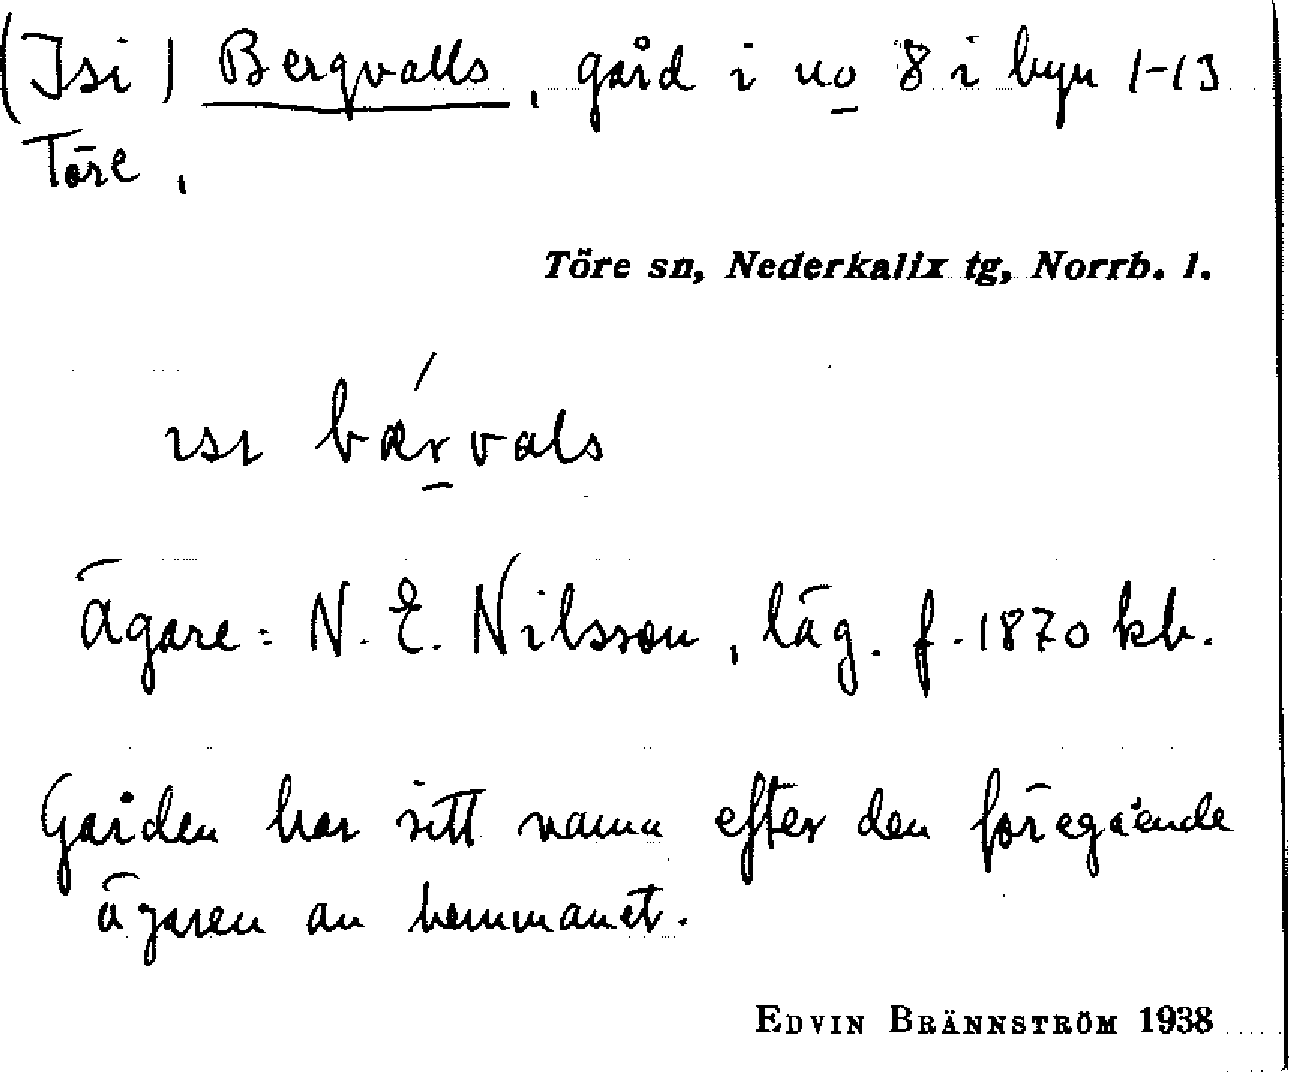 (Isi) Bergvalls, gård i no 8 i byn 1-13
Töre,
Töre sn, Nederkalix tg, Norrb. l.
ısı bærvals
Ägare: N. E. Nilsson, läg. f. 1870 kb.
Gården har sitt namn efter den föregående
ägaren av hemmanet.
EDVIN BRÄNNSTRÖM 1938